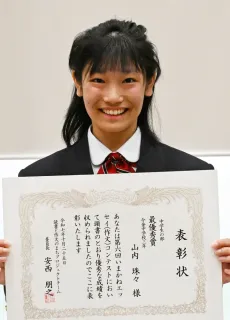 表彰状
中学生の部
最優秀賞
山内 珠々 様
あなたは第六回いまかねエッ
セイ(作文)コンテストにおい
て頭書のとおり優秀な成績を
収められましたのでここに表
彰いたします
令和七年十月二十五日
委員長 安西 朋之